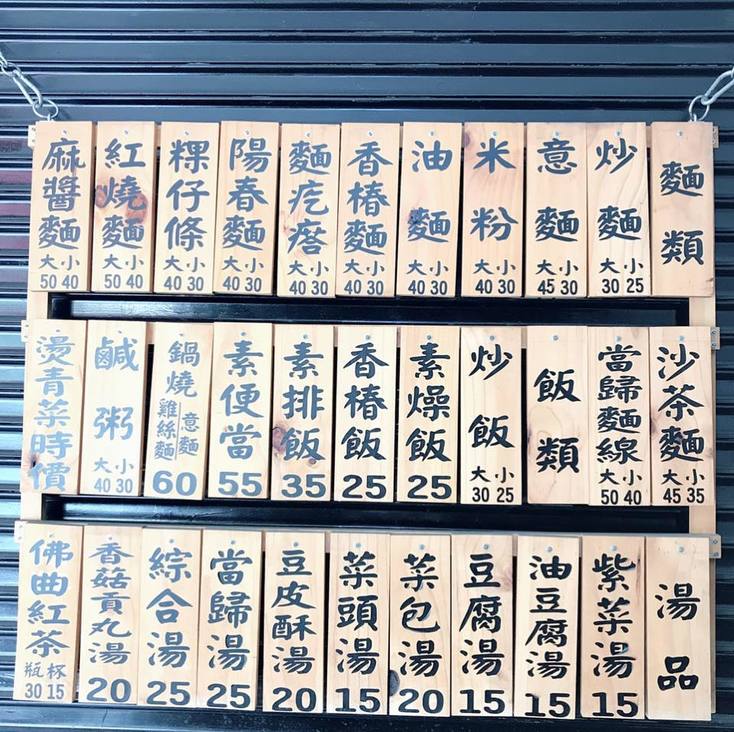 麵類
炒麵 大30 小25
意麵 大45 小30
米粉 大40 小30
油麵 大40 小30
香椿麵 大40 小30
麵疙瘩 大40 小30
陽春麵 大40 小30
粿仔條 大40 小30
紅燒麵 大50 小40
麻醬麵 大50 小40
沙茶麵 大45 小35
當歸麵線 大50 小40
飯類
炒飯 大30 小25
素燥飯 25
香椿飯 25
素排飯 35
素便當 55
鍋燒意麵雞絲麵 60
鹹粥 大40 小30
燙青菜時價
湯品
紫菜湯 15
油豆腐湯 15
豆腐湯 15
菜包湯 20
菜頭湯 15
豆皮酥湯 20
當歸湯 25
綜合湯 25
香菇貢丸湯 20
佛曲紅茶 瓶30 杯15